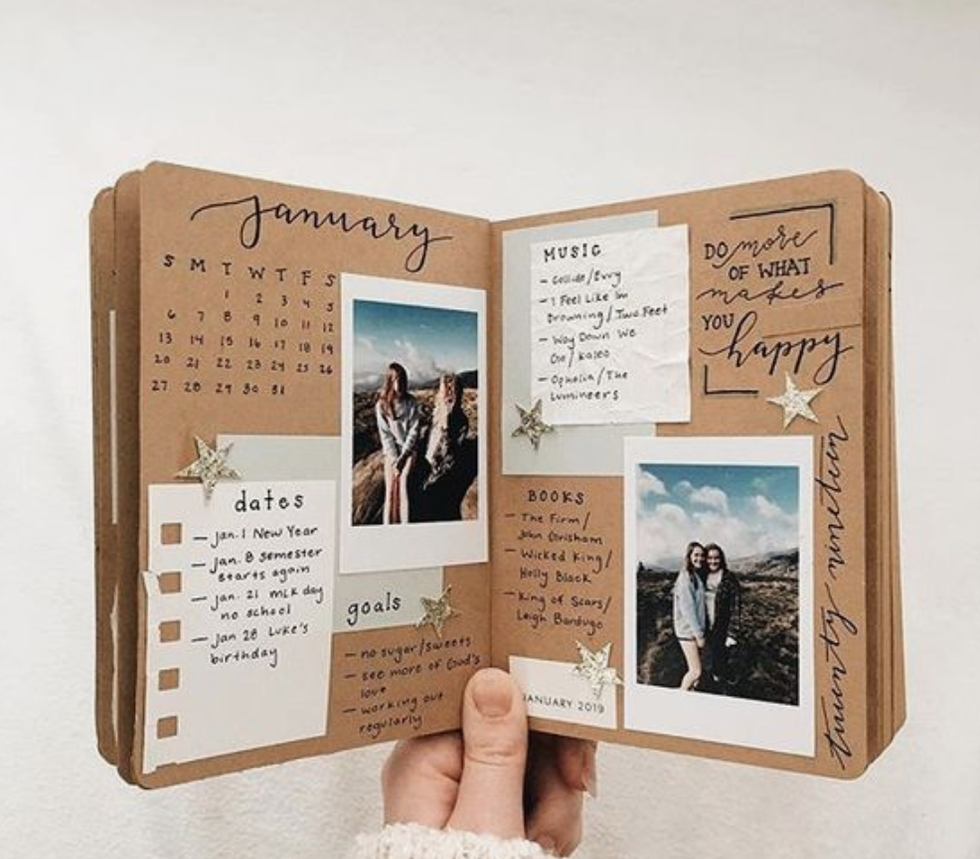 january
S M T W T F S
1 2 3 4 5
6 7 8 9 10 11 12
13 14 15 16 17 18 19
20 21 22 23 24 25 26
27 28 29 30 31
dates
— Jan. 1 New Year
— Jan. 8 semester
starts again
— Jan. 21 MLK day
no school
— Jan 28 Luke's
birthday
goals
— no sugar/sweets
— see more of God's
love
— working out
regularly
MUSIC
— Collide/
— I Feel Like Im
Drowning/Two Feet
— Way Down We
Go/Kaleo
— Ophelia/The
Lumineers
DO more
OF WHAT
makes
YOU
happy
BOOKS
— The Firm/
John Grisham
— Wicked King/
Holly Black
— King of Scars/
Leigh Bardugo
JANUARY 2019
twenty nineteen